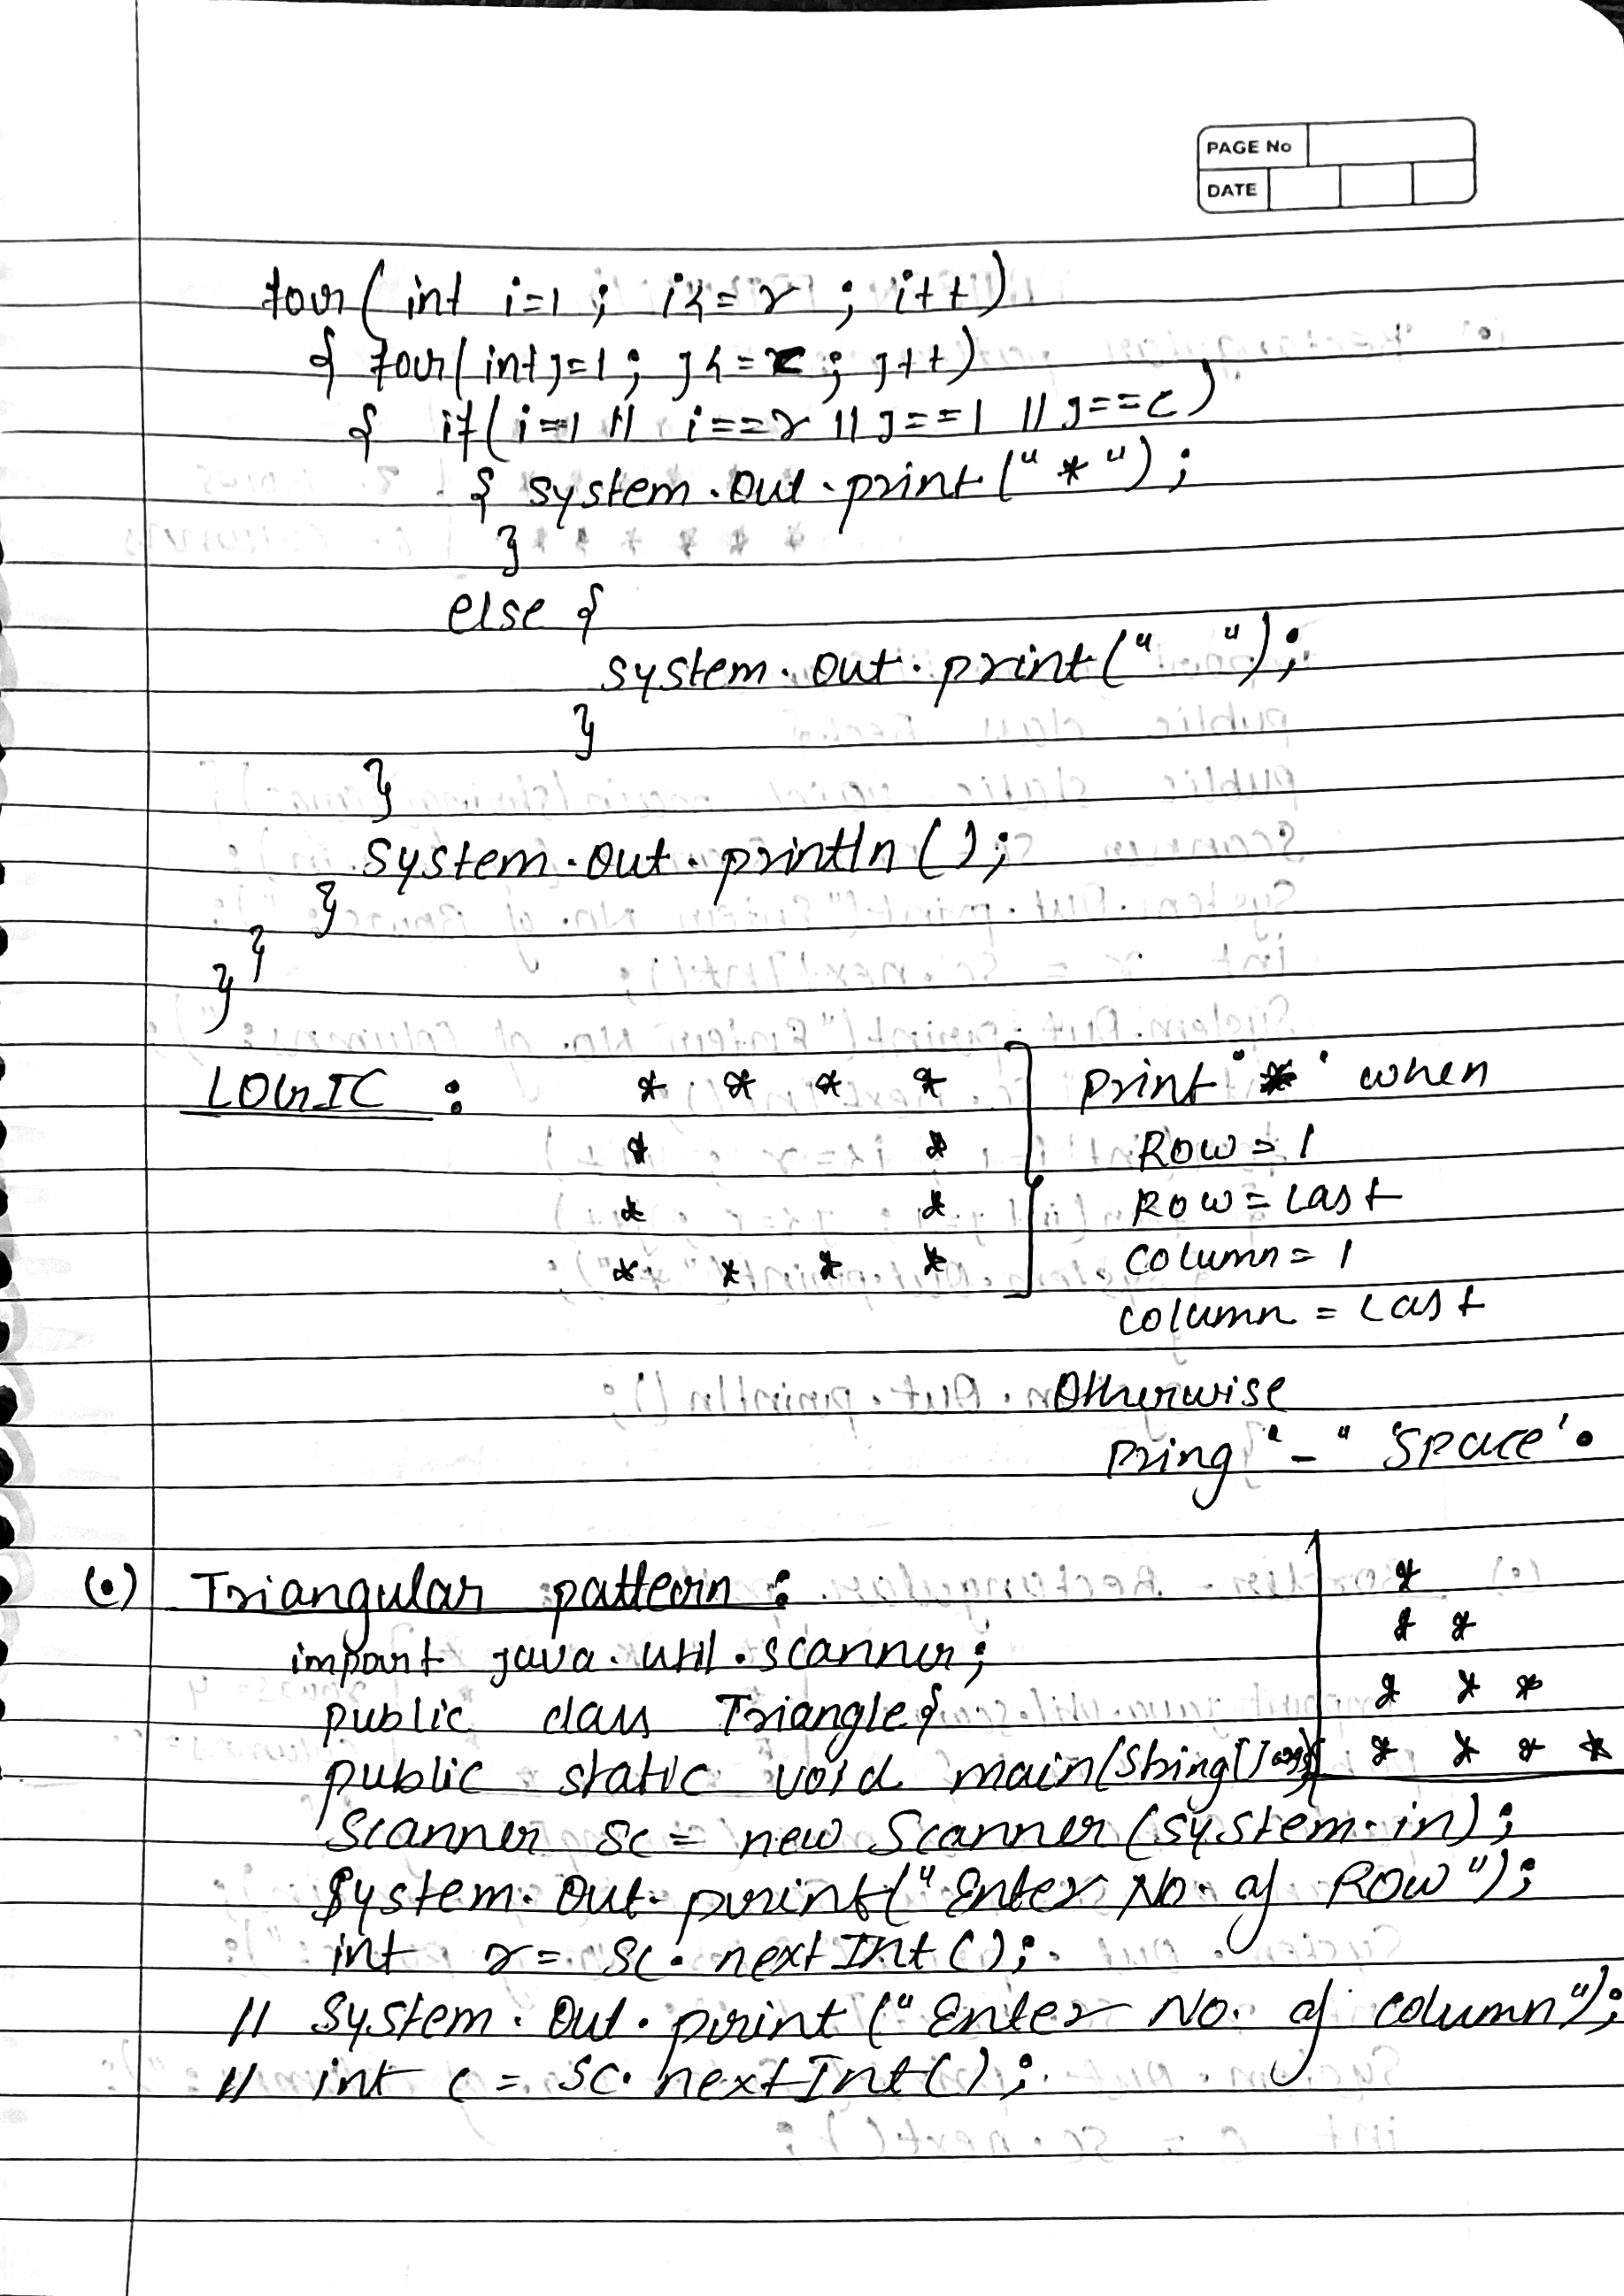 PAGE No
DATE
for( int i=1 ; i<=r ; i++)
{ for( int j=1 ; j<=c ; j++)
{ if( i=1 || i==r || j==1 || j==c)
{ system.out.print("*");
}
else {
system.out.print(" ");
}
}
system.out.println();
}
}
}
LOGIC : * * * * print '*' when
* * Row = 1
* * Row = Last
* * * * column = 1
column = Last
Otherwise
pring "_" 'space'.
(•) Triangular pattern : *
* *
import java.util.scanner;
public class Triangle{ * * *
public static void main(String[] args){ * * * *
Scanner sc = new Scanner(system.in);
System.out.print("Enter No. of Row");
int r = sc.nextInt();
// System.out.print("Enter No. of column");
// int c = sc.nextInt();